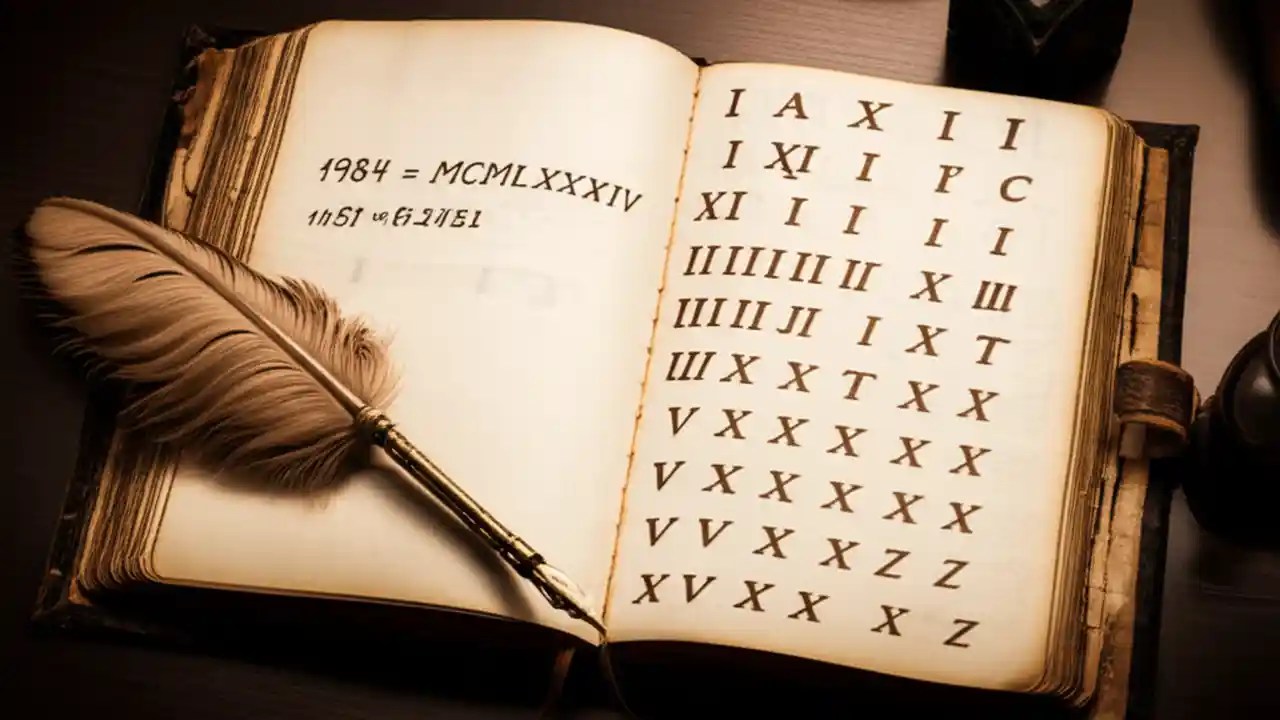 1984 = MCMLXXXIV
I A X I I
I XI I I C
XI I I I I
II III II II X III
III II JI I X T
III X X T X X
V X X X X X
V X X X X X
V V X X Z Z
X V X X X Z